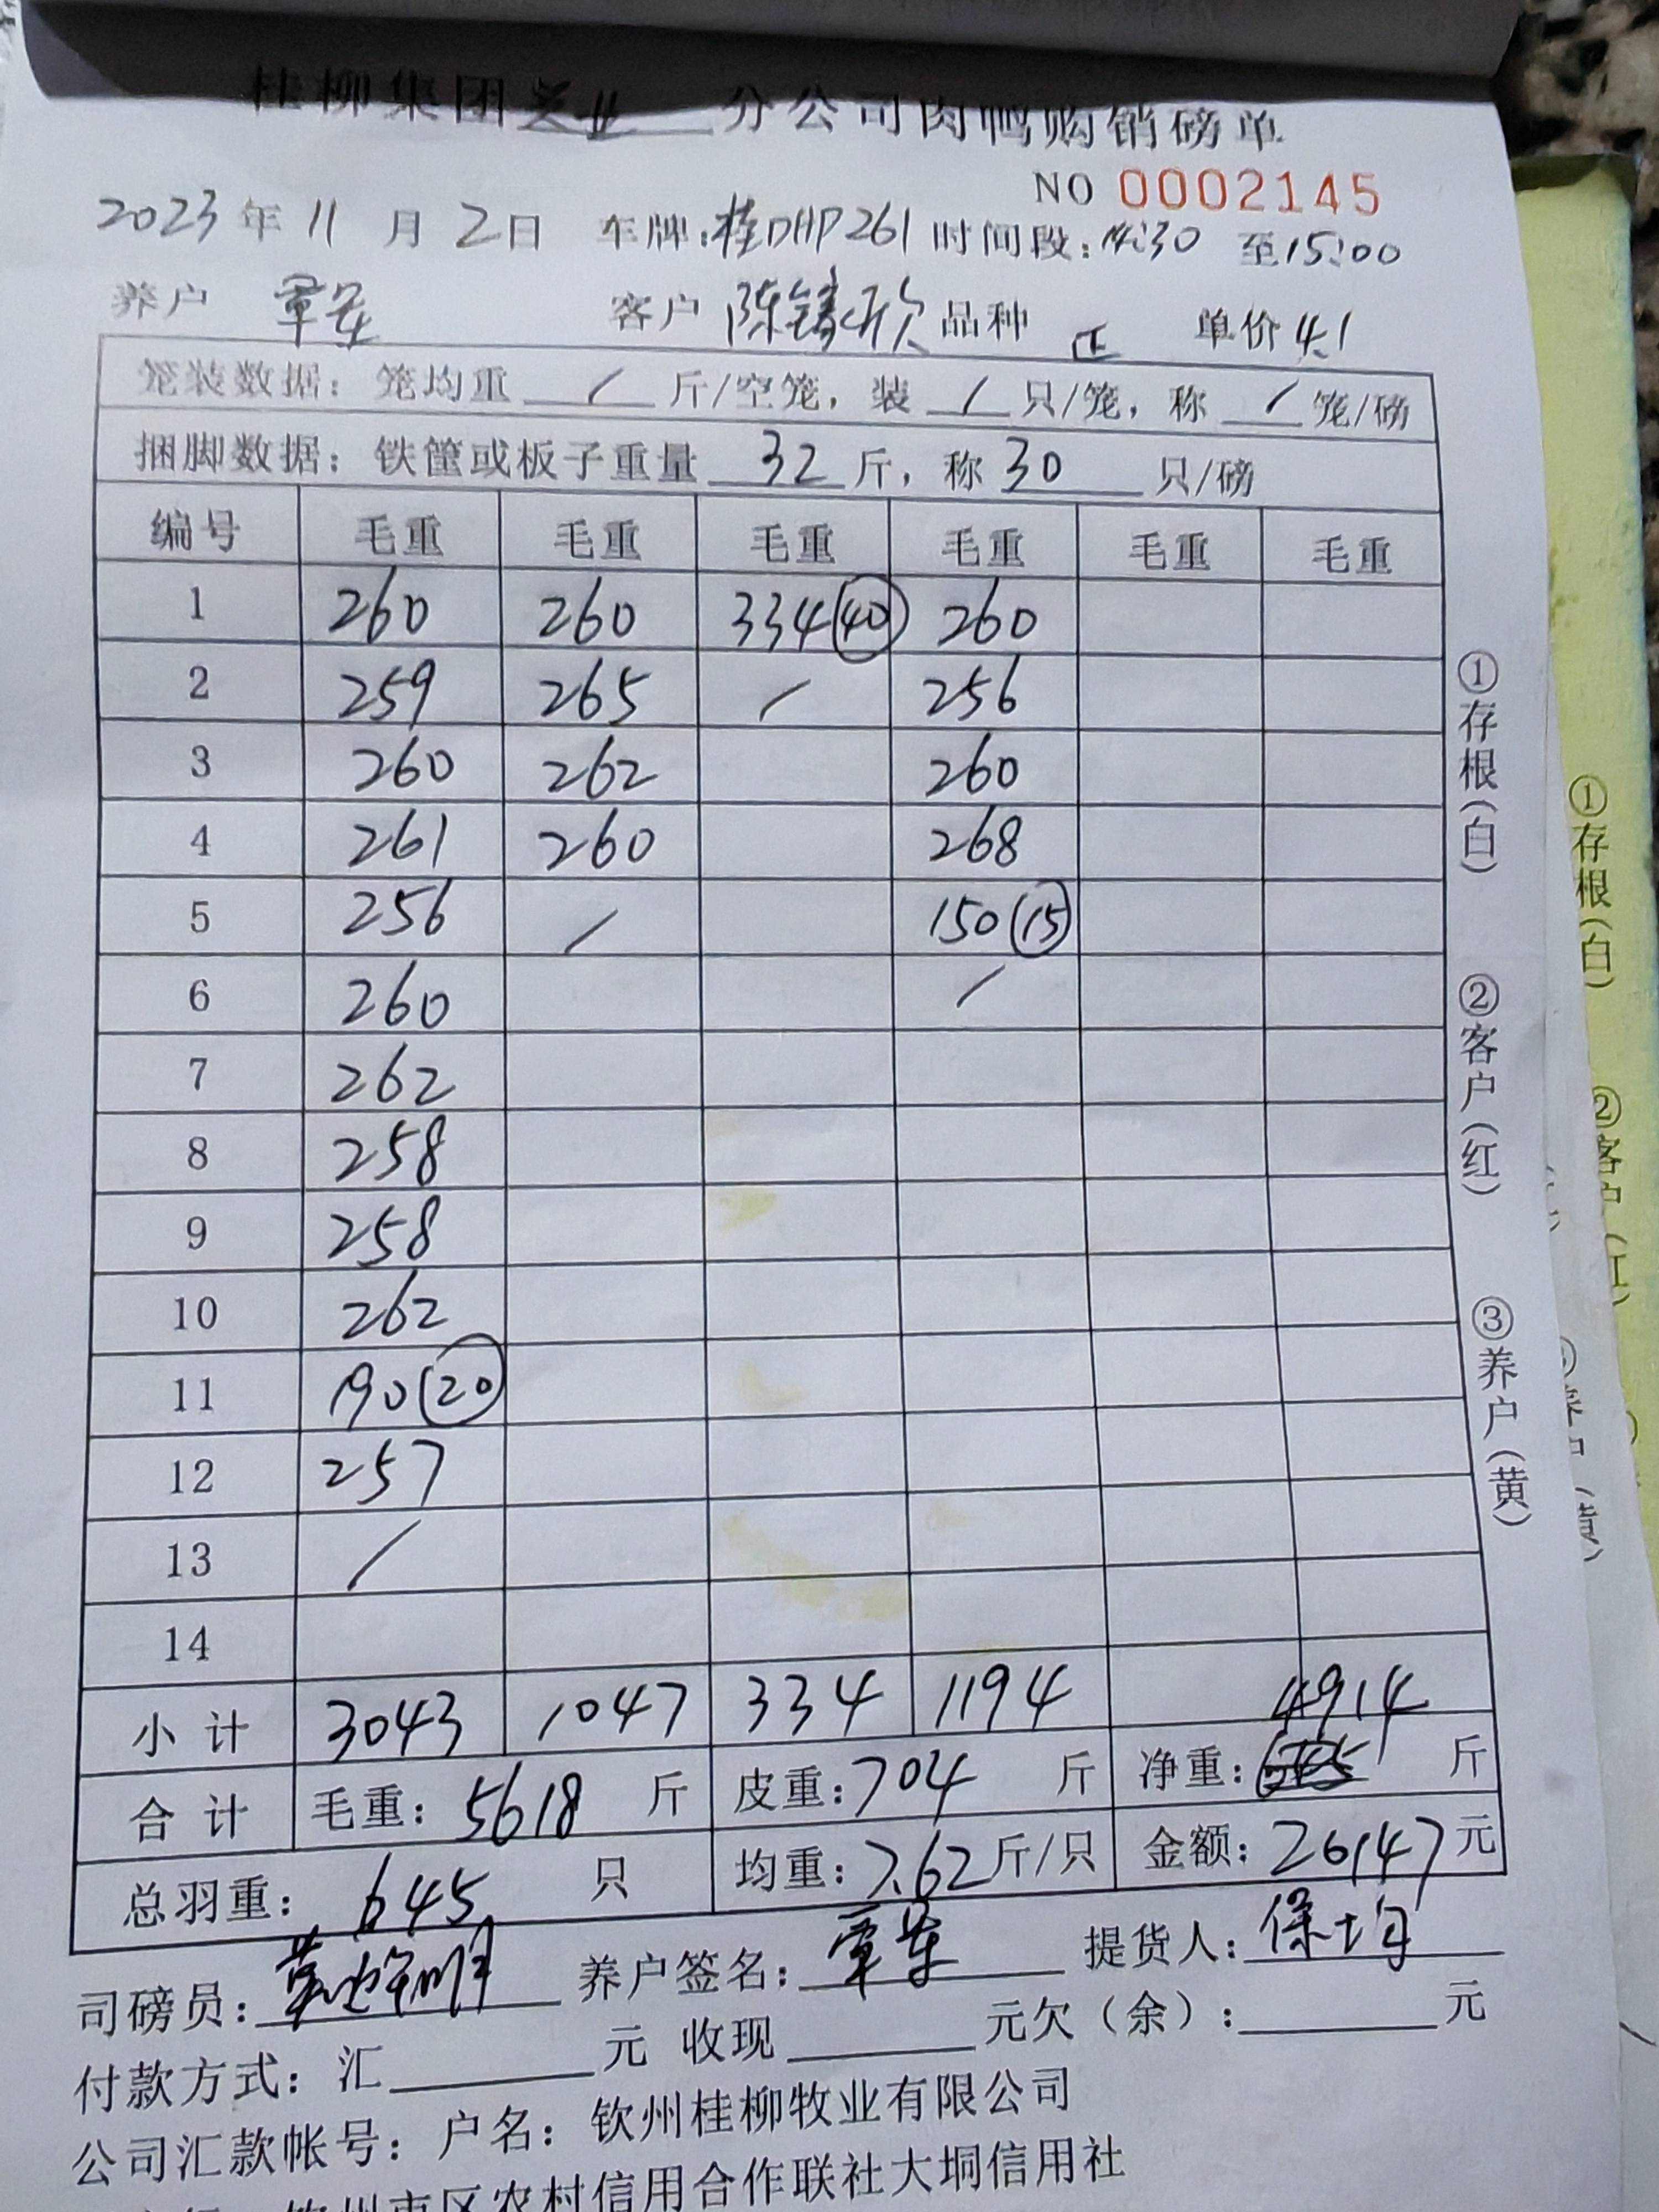 桂柳集团兴业分公司肉鸭购销磅单
NO 0002145
2023年11月2日 车牌:桂DHP261 时间段:14:30至15:00
养户 覃 客户 陈铸欣 品种 正 单价4.1
笼装数据: 笼均重 / 斤/空笼, 装 / 只/笼, 称 / 笼/磅
捆脚数据: 铁筐或板子重量 32 斤, 称 30 只/磅
编号 毛重 毛重 毛重 毛重 毛重 毛重
1 260 260 334(40) 260
2 259 265 / 256
3 260 262 260
4 261 260 268
5 256 / 150(15)
6 260 /
7 262
8 258
9 258
10 262
11 190(20)
12 257
13 /
14
小计 3043 1047 334 1194
合计 毛重: 5618 斤 皮重: 704 斤 净重: 4914 斤
总羽重: 645 只 均重: 7.62 斤/只 金额: 26147 元
司磅员: 养户签名: 覃 提货人:
付款方式: 汇 元 收现 元欠(余): 元
公司汇款帐号: 户名: 钦州桂柳牧业有限公司
钦州市区农村信用合作联社大垌信用社
①存根(白) ②客户(红) ③养户(黄)
①存根(白)
②客户(红)